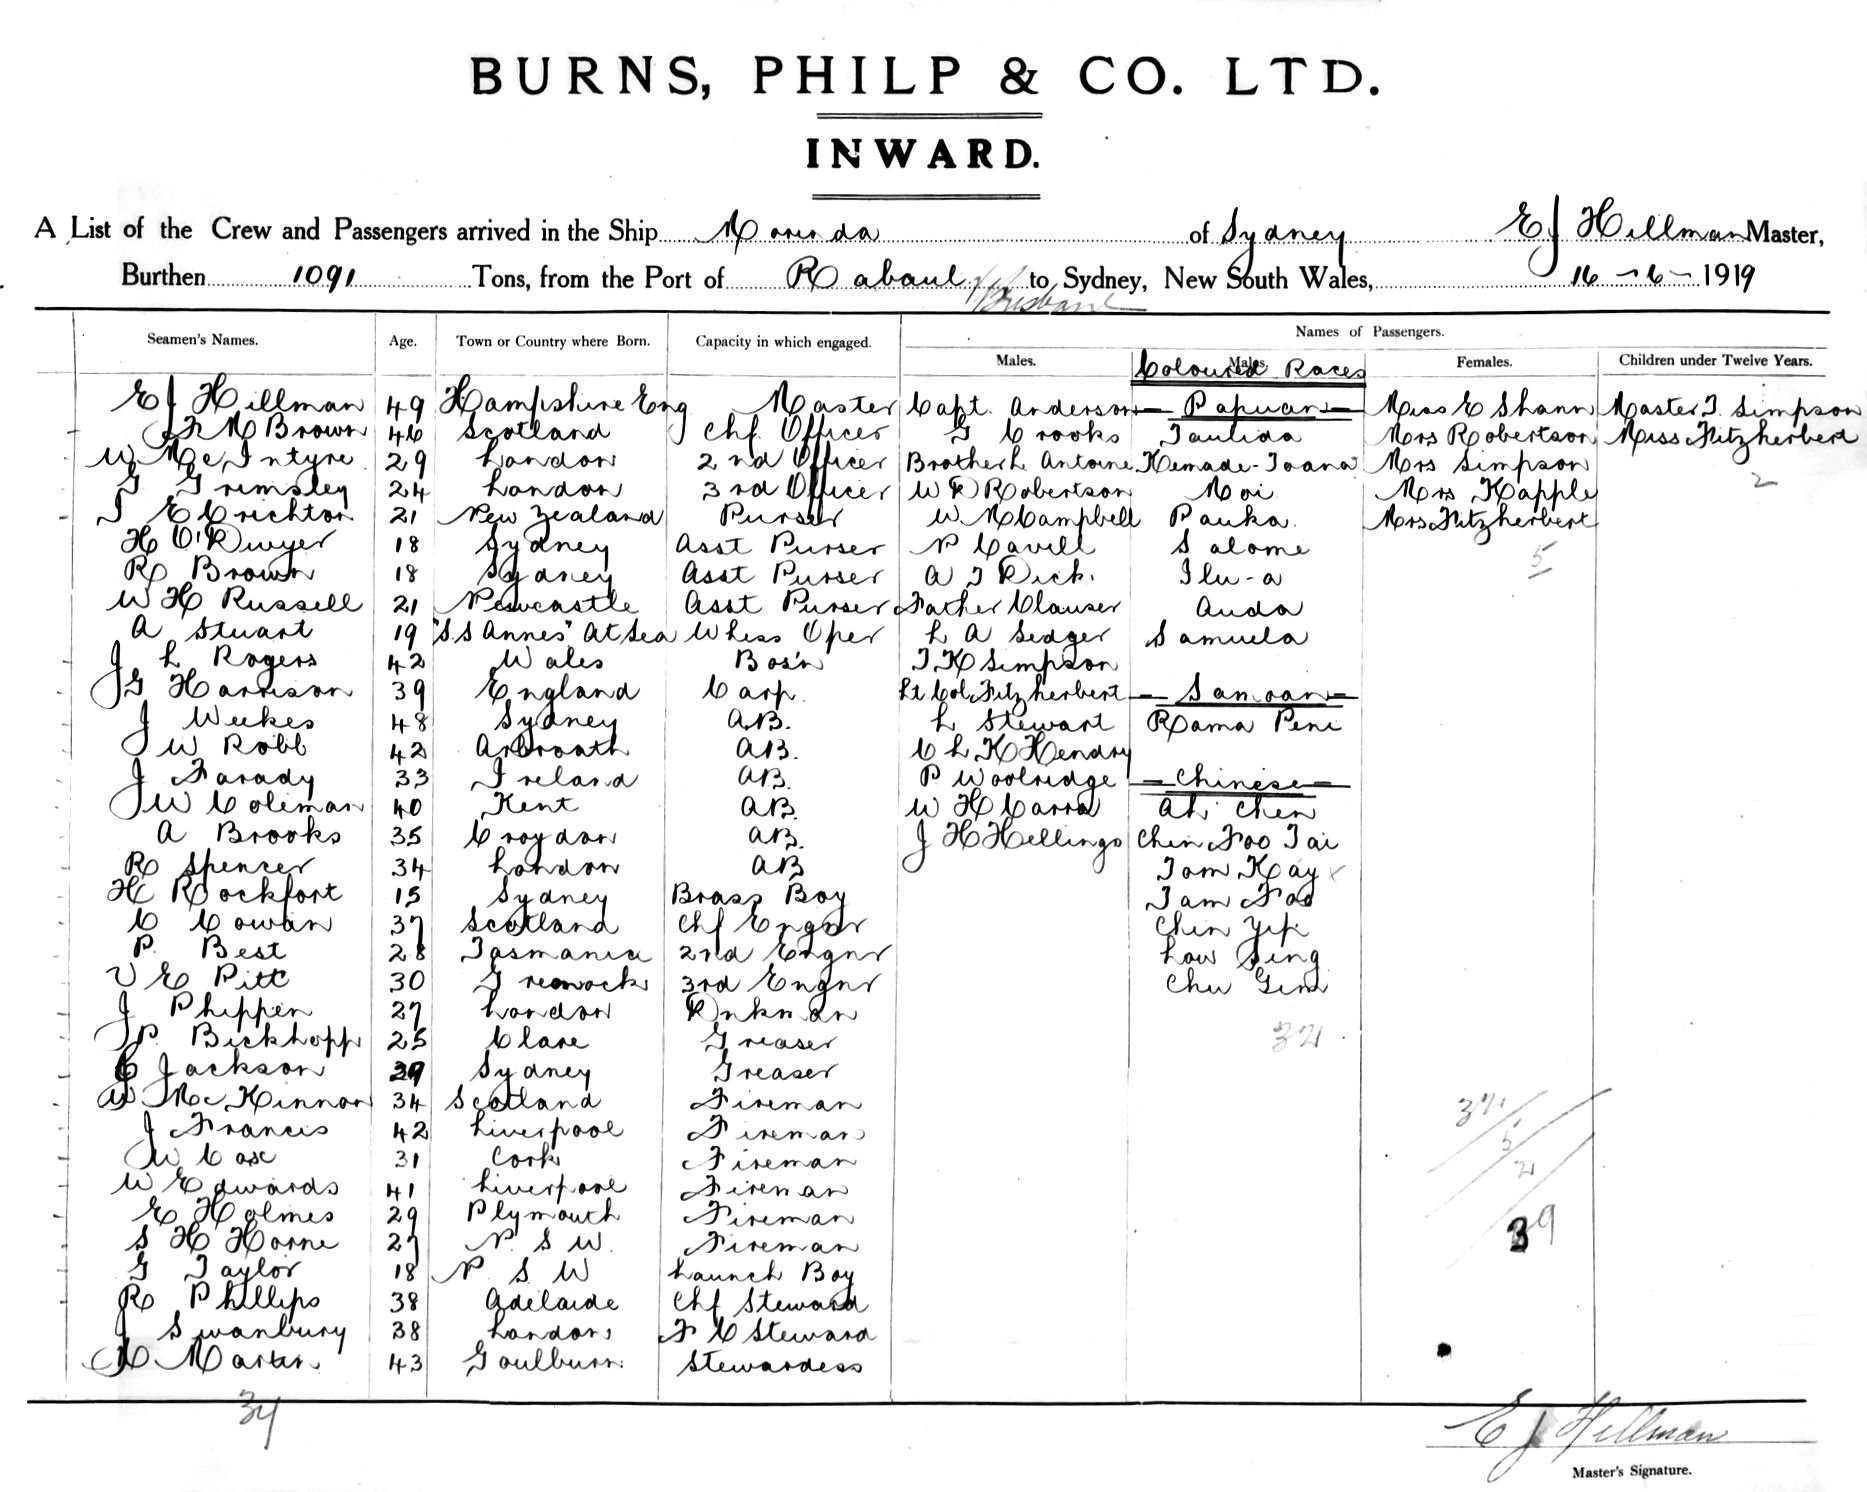 BURNS, PHILP & CO. LTD.
INWARD.
A List of the Crew and Passengers arrived in the Ship Morinda of Sydney E J Hillman Master,
Burthen 1091 Tons, from the Port of Rabaul v/ Brisbane to Sydney, New South Wales, 16-6-1919
Names of Passengers.
Seamen's Names. Age. Town or Country where Born. Capacity in which engaged. Males. Males. Coloured Races Females. Children under Twelve Years.
E J Hillman 49 Hampshire Eng Master Capt. Anderson — Papuan — Miss E Shann Master J. Simpson
J R M Brown 46 Scotland Chf Officer G Crooks Taulida Mrs Robertson Miss Fitzherbert
W McIntyre 29 London 2nd Officer Brother L Antoine Kemade-Toana Mrs Simpson
G Grimsley 24 London 3rd Officer W D Robertson Moi Mrs Kapple 2
S E Crichton 21 New Zealand Purser W M Campbell Pauka Mrs Fitzherbert
H O'Dwyer 18 Sydney Asst Purser N Cavill Salome 5
R Brown 18 Sydney Asst Purser A J Dick. Ilu-a
W H Russell 21 Newcastle Asst Purser Father Clauser Auda
A Stuart 19 "S.S Annes" At Sea Wless Oper L A Sedger Samuela
J L Rogers 42 Wales Bos'n J K Simpson
J G Harrison 39 England Carp. Lt Col. Fitzherbert — Samoan —
J Weekes 48 Sydney A.B. L Stewart Rama Peni
J W Robb 42 Arbroath A.B. C L K Hendry
J Farady 33 Ireland A.B. P Woolridge — Chinese —
J W Coleman 40 Kent A.B. W H Carra Ah Chen
A Brooks 35 Croydon A.B. J H Hellings Chin Foo Tai
R Spencer 34 London A.B Tom Kay x
H Rockfort 15 Sydney Brass Boy Tam Foo
C Cowan 37 Scotland Chf Engnr Chin Yip
P. Best 28 Tasmania 2nd Engnr Low Sing
V E Pitt 30 Greenock 3rd Engnr Chu Gim
J Phippen 27 London Dnkman
J P. Bickhopp 25 Clare Greaser 32
C Jackson 39 Sydney Greaser
W McKinnon 34 Scotland Fireman 32
J Francis 42 Liverpool Fireman 5
W Case 31 Cork Fireman 2
W Edwards 41 Liverpool Fireman
E Holmes 29 Plymouth Fireman 39
S H Horne 27 N. S W. Fireman
G Taylor 18 N S W Launch Boy
R Phillips 38 Adelaide Chf Steward
J Swanbury 38 London F C Steward
Martin 43 Goulburn Stewardess
34
E J Hillman
Master's Signature.